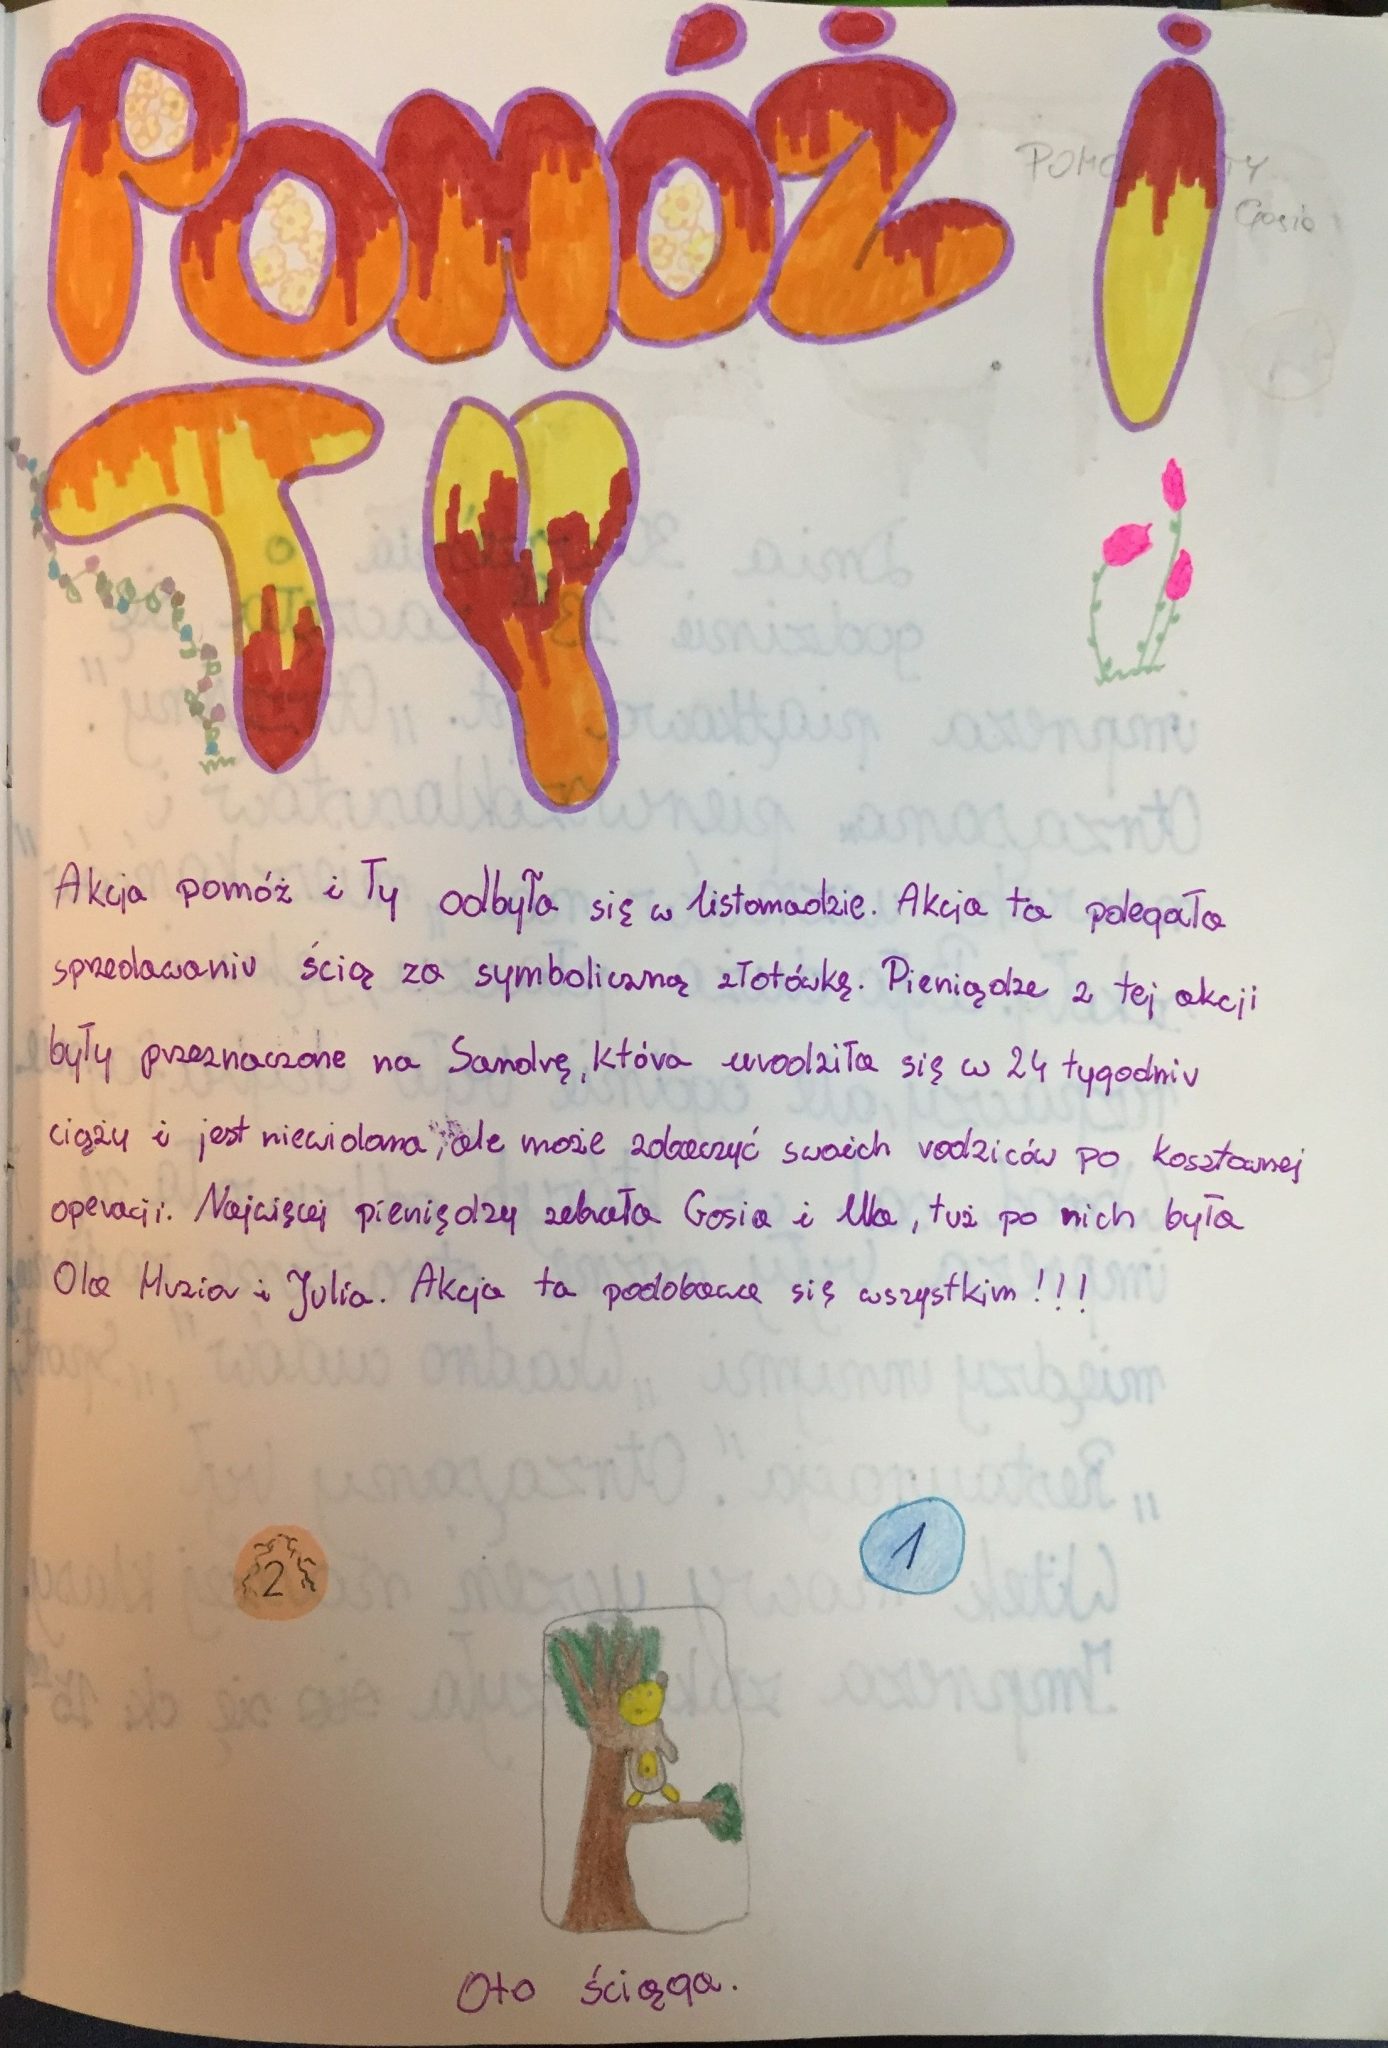 POMÓŻ I
TY
Gosia
Akcja pomóż i Ty odbyła się w listomadzie. Akcja ta polegała
sprzedawaniu ściąg za symboliczną złotówkę. Pieniądze z tej akcji
były przeznaczone na Sandrę, która urodziła się w 24 tygodniu
ciąży i jest niewidoma, ale może zobaczyć swoich rodziców po kosztownej
operacji. Najwięcej pieniędzy zebrała Gosia i Ula, tuż po nich była
Ola Muzia i Julia. Akcja ta podobała się wszystkim!!!
2
1
Oto ściąga.